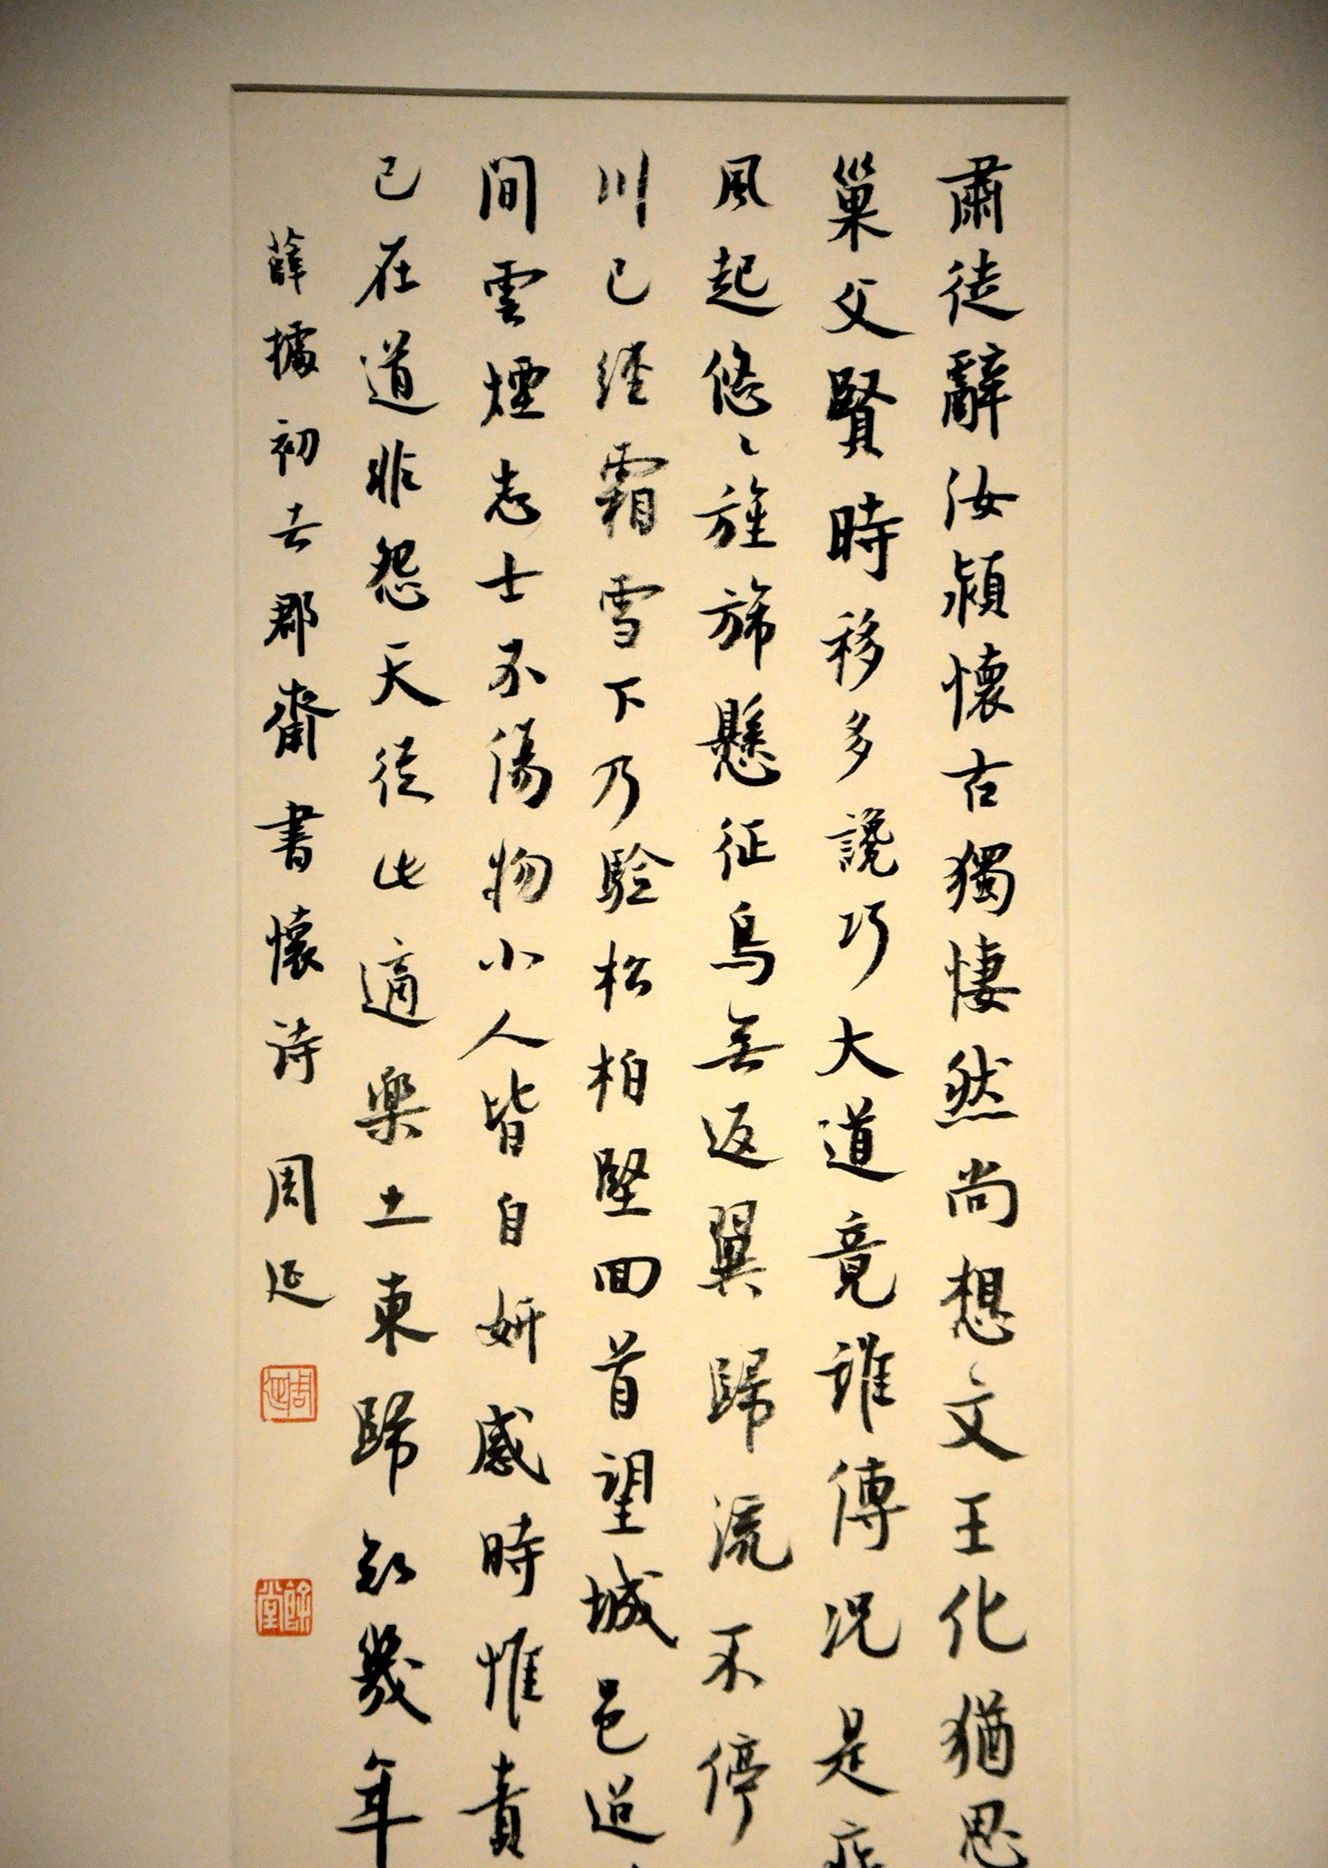 肅徒辭汝潁懷古獨悽然尚想文王化猶思
巢父賢時移多讒巧大道竟誰傳況是疾
風起悠〻旌旆懸征鳥無返翼歸流不停
川已經霜雪下乃驗松柏堅回首望城邑迢
間雲煙志士不傷物小人皆自妍感時惟責
己在道非怨天從此適樂土東歸知幾年
薛據初去郡齋書懷詩 周延
周延
堂